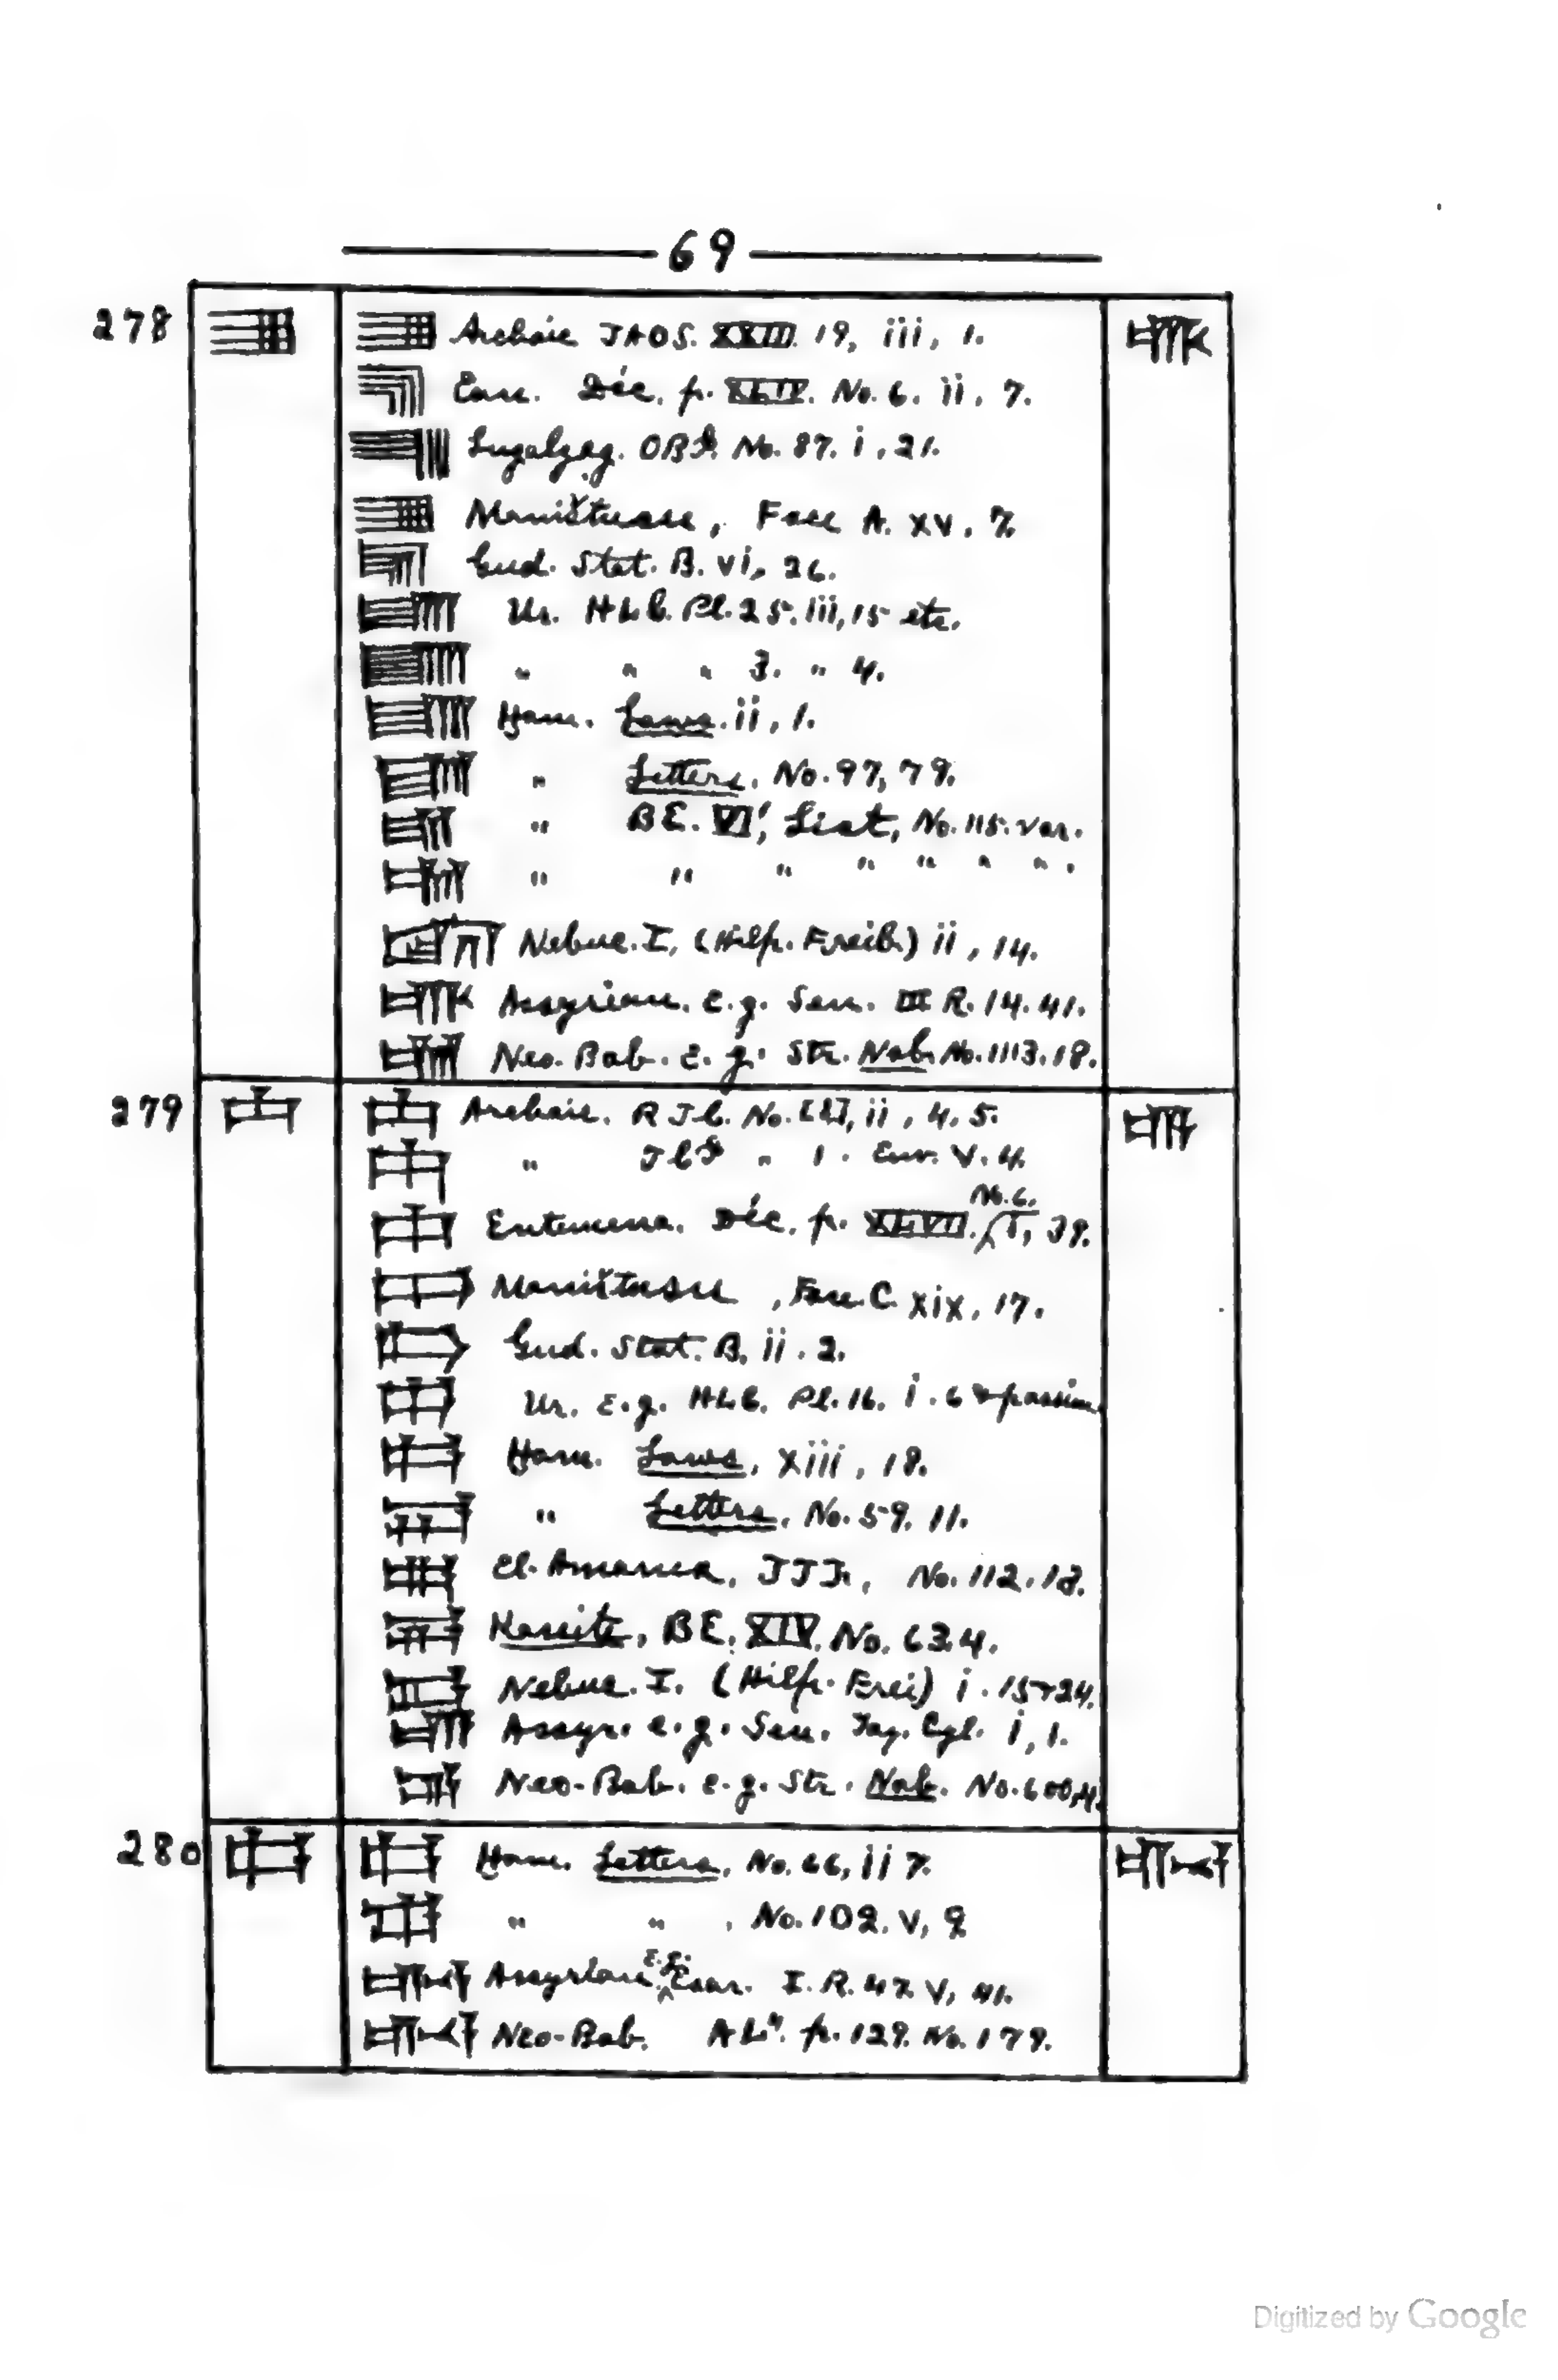 69
278 Archaic JAOS. XXIII. 19, iii, 1.
Ean. Déc. p. XLIV. No. 6. ii, 7.
Lugalzag. OBI. No. 87. i, 21.
Maništusu, Face A. xv. 7.
Gud. Stat. B. vi, 26.
Ur. HLC. Pl. 25. iii, 15 etc.
" " " 3. " 4.
Ḫam. Laws. ii, 1.
" Letters, No. 97, 79.
" BE. VI', List, No. 115. var.
" " " " " " " .
Nebuc. I, (Hilp. Freib.) ii, 14.
Assyrian. e.g. Sen. III R. 14. 41.
Neo-Bab. e.g. Str. Nab. No. 1113. 18.
279 Archaic. RTC. No. ii, 4, 5.
" " 1. Env. V. 4.
Entemena. Déc. p. XLVII. No. 6. I, 39.
Maništusu, Face. C. xix, 17.
Gud. Stat. B, ii. 2.
Ur. e.g. HLC. Pl. 16. i. 6 & passim.
Ḫam. Laws, xiii, 18.
" Letters, No. 59. 11.
El-Amarna, No. 112. 18.
Kassite, BE. XIV. No. 63.4.
Nebuc. I. (Hilp. Frei) i. 15+24.
Assyr. e.g. Sen. Tay. Cyl. i, 1.
Neo-Bab. e.g. Str. Nab. No. 600,4.
280 Ḫam. Letters, No. 66, ii 7.
" " , No. 102. V, 9
Assyrian e.g. Esar. I. R. 47. V, 41.
Neo-Bab. AL⁴. p. 129. No. 179.
Digitized by Google